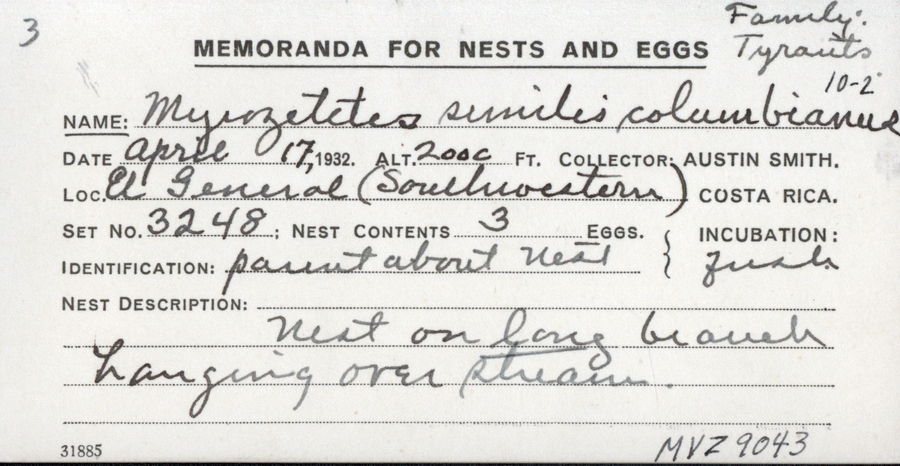 3
Family:
MEMORANDA FOR NESTS AND EGGS Tyrants
10-2
NAME: Myiozetetes similis columbianus
DATE April 17, 1932. ALT. 2000 FT. COLLECTOR: AUSTIN SMITH.
LOC. El General (Southwestern) COSTA RICA.
SET NO. 3248; NEST CONTENTS 3 EGGS. { INCUBATION:
IDENTIFICATION: parent about nest fresh
NEST DESCRIPTION:
Nest on long branch
hanging over stream.
31885 MVZ 9043